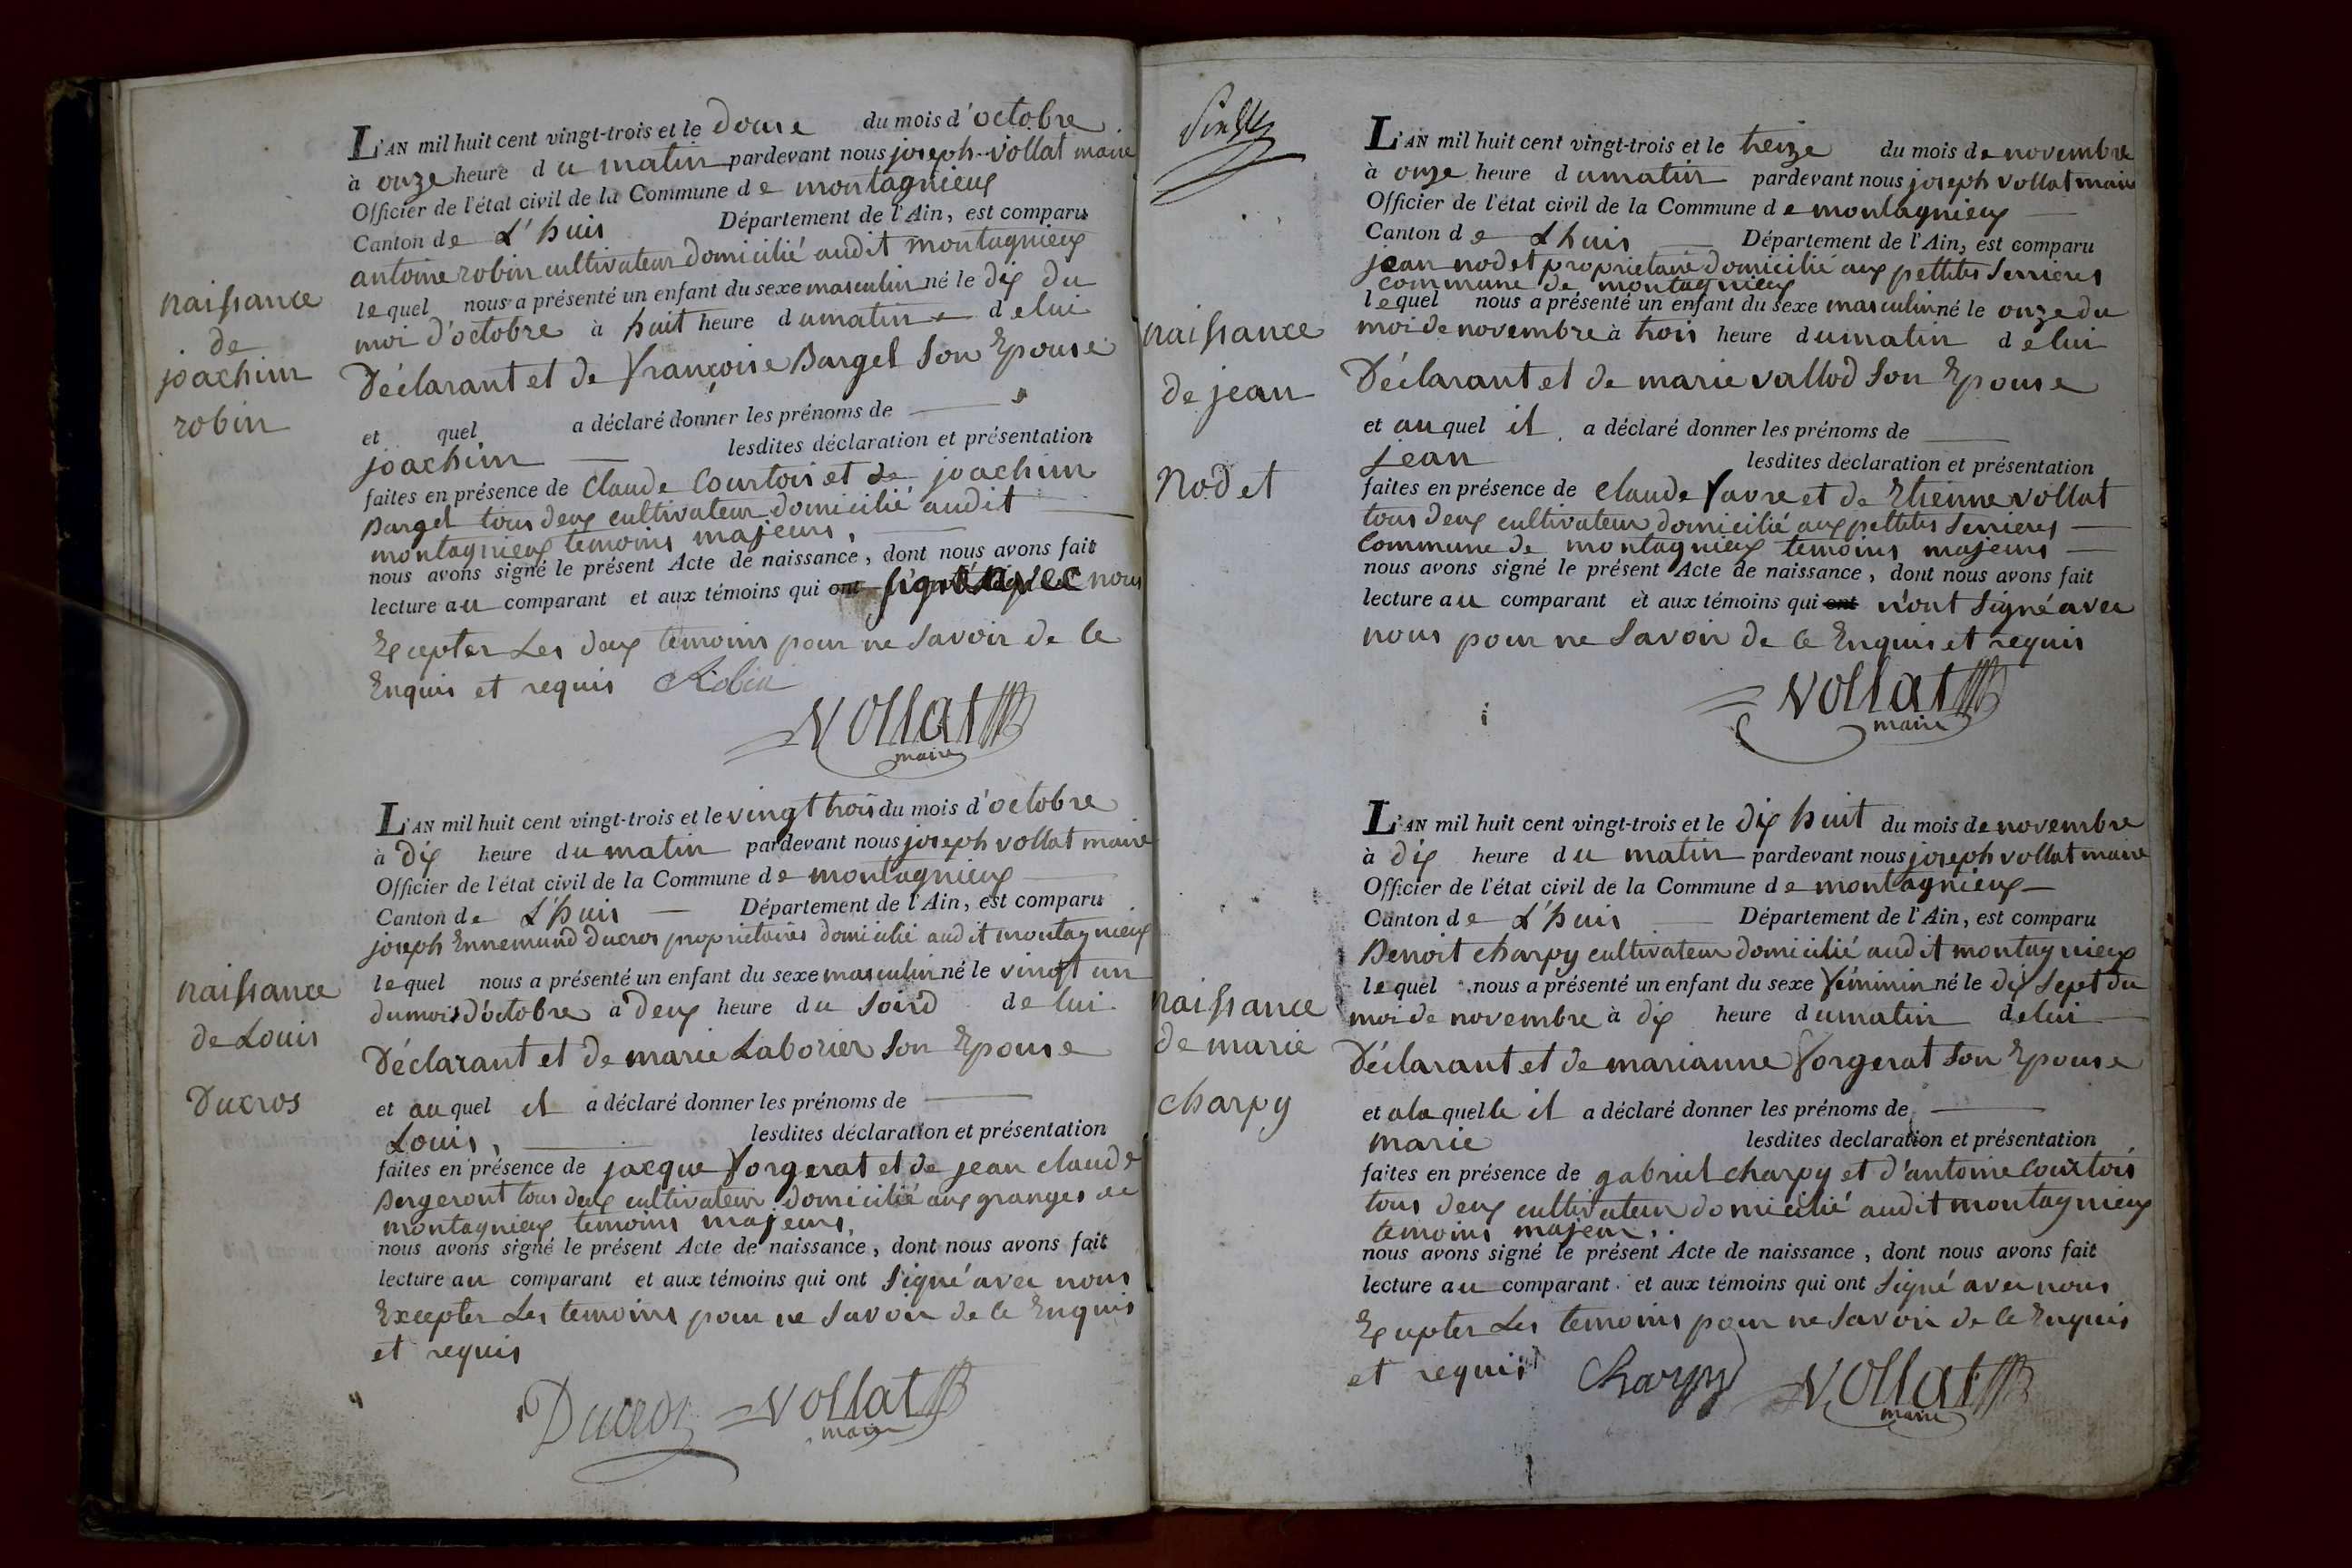 naissance
de
joachim
robin
L'AN mil huit cent vingt-trois et le douse du mois d'octobre
à onze heure du matin pardevant nous joseph vollat maire
Officier de l'état civil de la Commune de montagnieux
Canton de L'huis Département de l'Ain, est comparu
antoine robin cultivateur domicilié audit montagnieux
lequel nous a présenté un enfant du sexe masculin né le dix du
moi d'octobre à huit heure du matin de lui
Déclarant et de françoise Bargel son Epouse
et quel a déclaré donner les prénoms de
joachim lesdites déclaration et présentation
faites en présence de claude Courtois et de joachim
Bargel tous deux cultivateur domicilié audit
montagnieux temoins majeurs,
nous avons signé le présent Acte de naissance, dont nous avons fait
lecture au comparant et aux témoins qui ont signé avec nous
Excepter Les deux temoins pour ne savoir de ce
Enquis et requis Robin
Vollat
maire
naissance
de Louis
Ducros
L'AN mil huit cent vingt-trois et le vingt trois du mois d'octobre
à dix heure du matin pardevant nous joseph vollat maire
Officier de l'état civil de la Commune de montagnieux
Canton de L'huis Département de l'Ain, est comparu
joseph Ennemund Ducros proprietaires domicilié audit montagnieux
lequel nous a présenté un enfant du sexe masculin né le vingt un
du mois d'octobre à deux heure du soird de lui
Déclarant et de marie Laborier son Epouse
et auquel il a déclaré donner les prénoms de
Louis, lesdites déclaration et présentation
faites en présence de jacque forgerat et de jean claude
Bergeront tous deux cultivateur domicilié aux granges de
montagnieux temoins majeurs,
nous avons signé le présent Acte de naissance, dont nous avons fait
lecture au comparant et aux témoins qui ont signé avec nous
Excepter Les temoins pour ne savoir de ce Enquis
et requis
Ducros Vollat
maire
naissance
de jean
Nodet
L'AN mil huit cent vingt-trois et le treize du mois de novembre
à onze heure du matin pardevant nous joseph vollat maire
Officier de l'état civil de la Commune de montagnieux
Canton de Lhuis Département de l'Ain, est comparu
jean nodet proprietaire domicilié aux pettites serrieres
commune de montagnieux
lequel nous a présenté un enfant du sexe masculin né le onze du
moi de novembre à trois heure du matin de lui
Déclarant et de marie vallod son Epouse
et auquel il a déclaré donner les prénoms de
jean lesdites déclaration et présentation
faites en présence de claude favre et de Etienne vollat
tous deux cultivateur domicilié aux pettites serrieres
commune de montagnieux temoins majeurs
nous avons signé le présent Acte de naissance, dont nous avons fait
lecture au comparant et aux témoins qui ont n'ont signé avec
nous pour ne savoir de ce Enquis et requis
Vollat
maire
naissance
de marie
charpy
L'AN mil huit cent vingt-trois et le dix huit du mois de novembre
à dix heure du matin pardevant nous joseph vollat maire
Officier de l'état civil de la Commune de montagnieux
Canton de L'huis Département de l'Ain, est comparu
Benoit charpy cultivateur domicilié audit montagnieux
lequel nous a présenté un enfant du sexe féminin né le dix sept du
moi de novembre à dix heure du matin de lui
Déclarant et de marianne forgerat son Epouse
et a laquelle il a déclaré donner les prénoms de
marie lesdites declaration et présentation
faites en présence de gabriel charpy et d'antoine Courtois
tous deux cultivateur domicilié audit montagnieux
temoins majeur,
nous avons signé le présent Acte de naissance, dont nous avons fait
lecture au comparant et aux témoins qui ont signé avec nous
Excepter Les temoins pour ne savoir de ce Enquis
et requis Charpy Vollat
maire